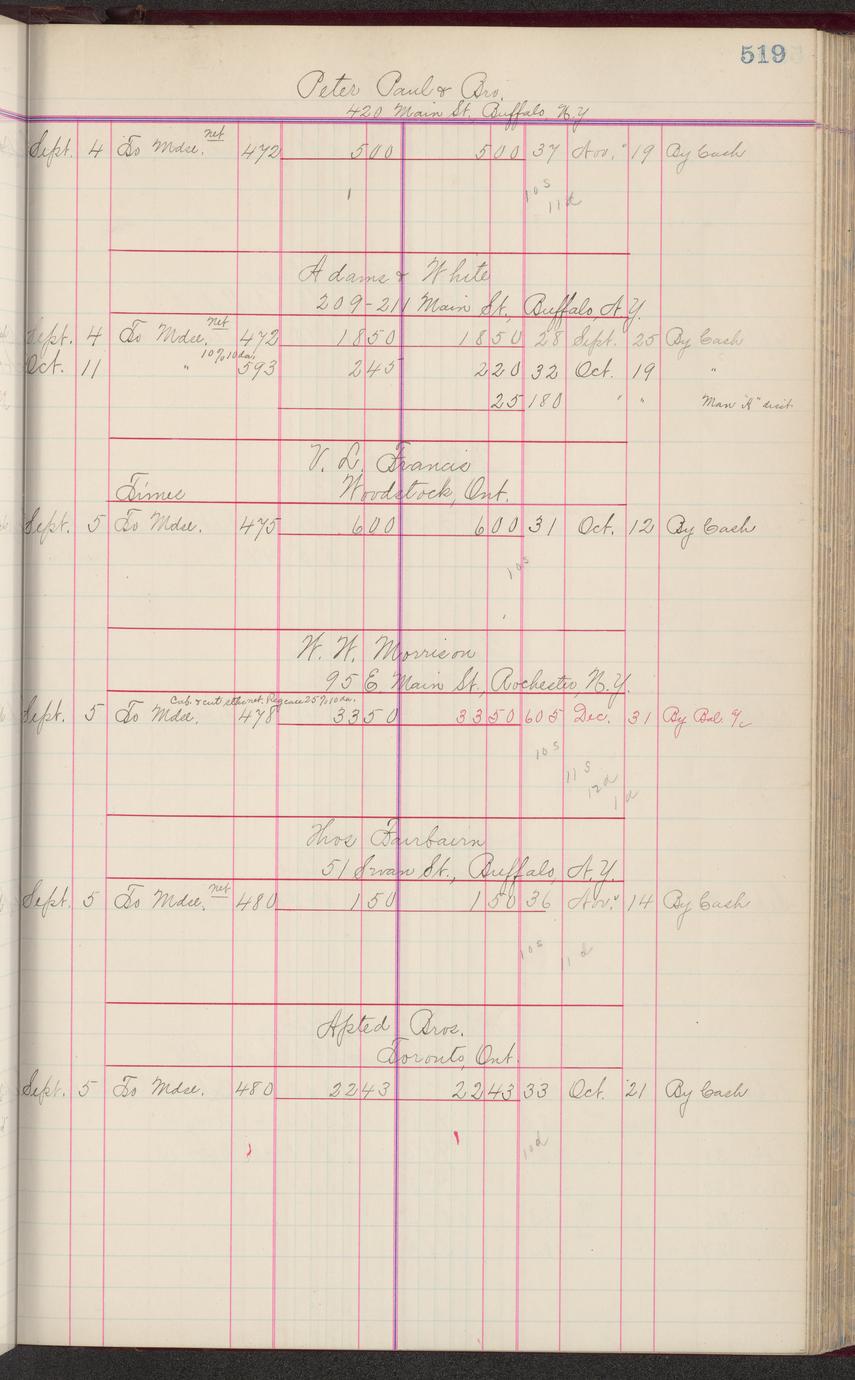 519
Peter Paul & Bro.
420 Main St, Buffalo, N.Y
Sept. 4 To Mdse. net 472 500 500 37 Nov. " 19 By Cash
10 s
11 d
Adams & White
209-211 Main St., Buffalo, N.Y.
Sept. 4 To Mdse. net 472 1850 1850 28 Sept. 25 By Cash
Oct. 11 " 10% 10 da. 593 245 220 32 Oct. 19 "
25 180 " " Man "A" disct
V. L. Francis
Times Woodstock, Ont.
Sept. 5 To Mdse. 475 600 600 31 Oct. 12 By Cash
10 s
W. W. Morrison
95 E Main St., Rochester, N.Y.
Cab. & cut sths net. Reg case 25% 10 da.
Sept. 5 To Mdse. 478 3350 3350 605 Dec. 31 By Bal.
10 s
11 s
12 d
1 d
Thos Fairbairn
51 Swan St., Buffalo, N.Y.
Sept. 5 To Mdse. net 480 150 150 36 Nov. " 14 By Cash
10 s 11 d
Apted Bros.
Toronto, Ont.
Sept. 5 To Mdse. 480 2243 2243 33 Oct. 21 By Cash
10 d